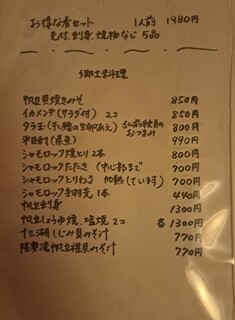 お得な肴セット 1人前 1980円
先付、刺身、焼物など 5品
郷土料理
帆立貝焼きみそ 850円
イカメンチ(サラダ付) 2コ 850円
タラ玉(干し鱈の生卵あえ) 800円
おつまみ
平目刺(県産) 990円
シャモロック焼とり 2本 800円
シャモロックたたき (中心部まで 700円
シャモロックとりわさ 加熱しています) 700円
シャモロック手羽先 1本 440円
帆立刺身 1300円
帆立しょうゆ焼、塩焼 2コ 各1300円
十三湖しじみ貝みそ汁 770円
陸奥湾帆立稚貝みそ汁 770円